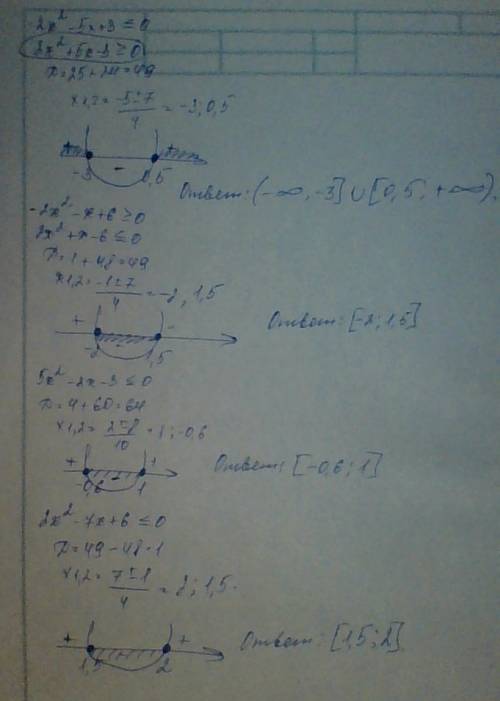 -2x² - 5x + 3 ≤ 0
2x² + 5x - 3 ≥ 0
D = 25 + 24 = 49
x1,2 = (-5 ± 7)/4 = -3; 0,5
+ - +
-3 0,5
Ответ: (-∞, -3] ∪ [0,5, +∞).
-2x² - x + 6 ≥ 0
2x² + x - 6 ≤ 0
D = 1 + 48 = 49
x1,2 = (-1 ± 7)/4 = -2; 1,5
+ - -
-2 1,5
Ответ: [-2; 1,5]
5x² - 2x - 3 ≤ 0
D = 4 + 60 = 64
x1,2 = (2 ± 8)/10 = 1; -0,6
+ - +
-0,6 1
Ответ: [-0,6; 1]
2x² - 7x + 6 ≤ 0
D = 49 - 48 = 1
x1,2 = (7 ± 1)/4 = 2; 1,5.
+ +
1,5 2
Ответ: [1,5; 2]